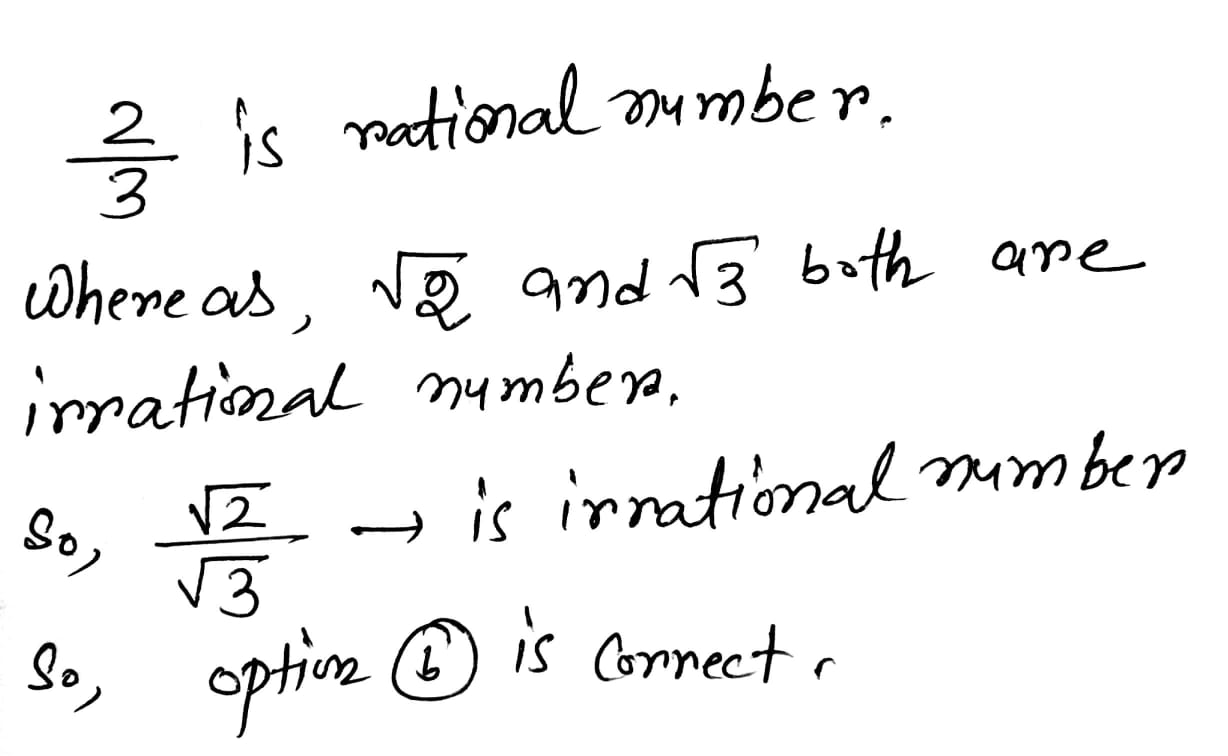 2/3 is rational number.
Whereas, √2 and √3 both are
irrational number.
So, √2/√3 → is irrational number
So, option ⓑ is correct.